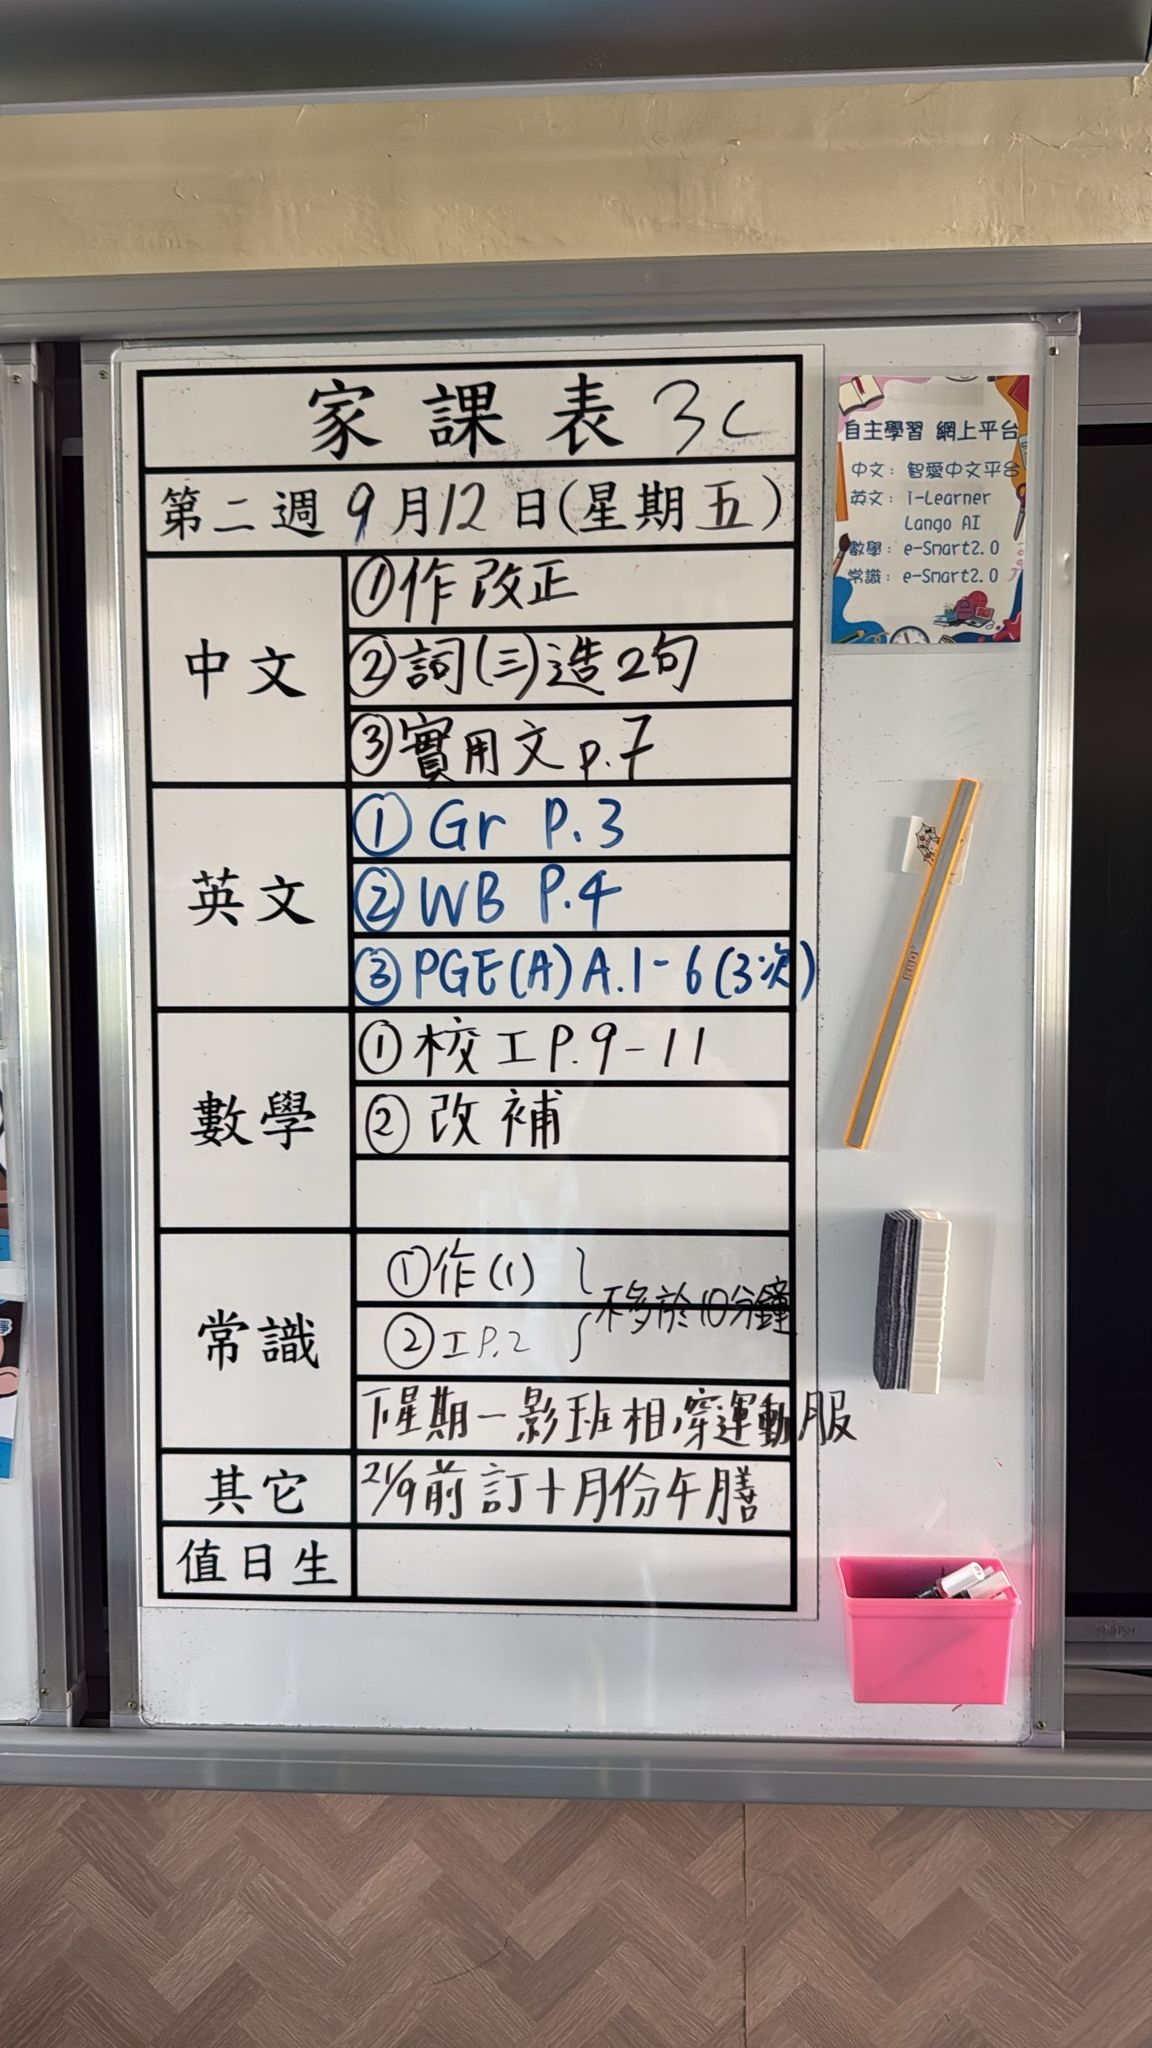 家課表 3C
第二週 9月12日(星期五)
中文
①作改正
②詞(三)造2句
③實用文 p.7
英文
① Gr P.3
② WB P.4
③ PGE(A) A.1-6(3次)
數學
① 校工P.9-11
② 改補
常識
①作(1)
②工P.2
不多於10分鐘
下星期一影班相,穿運動服
其它
21/9前訂十月份午膳
值日生
自主學習 網上平台
中文：智愛中文平台
英文：i-Learner
Lango AI
數學：e-Smart2.0
常識：e-Smart2.0